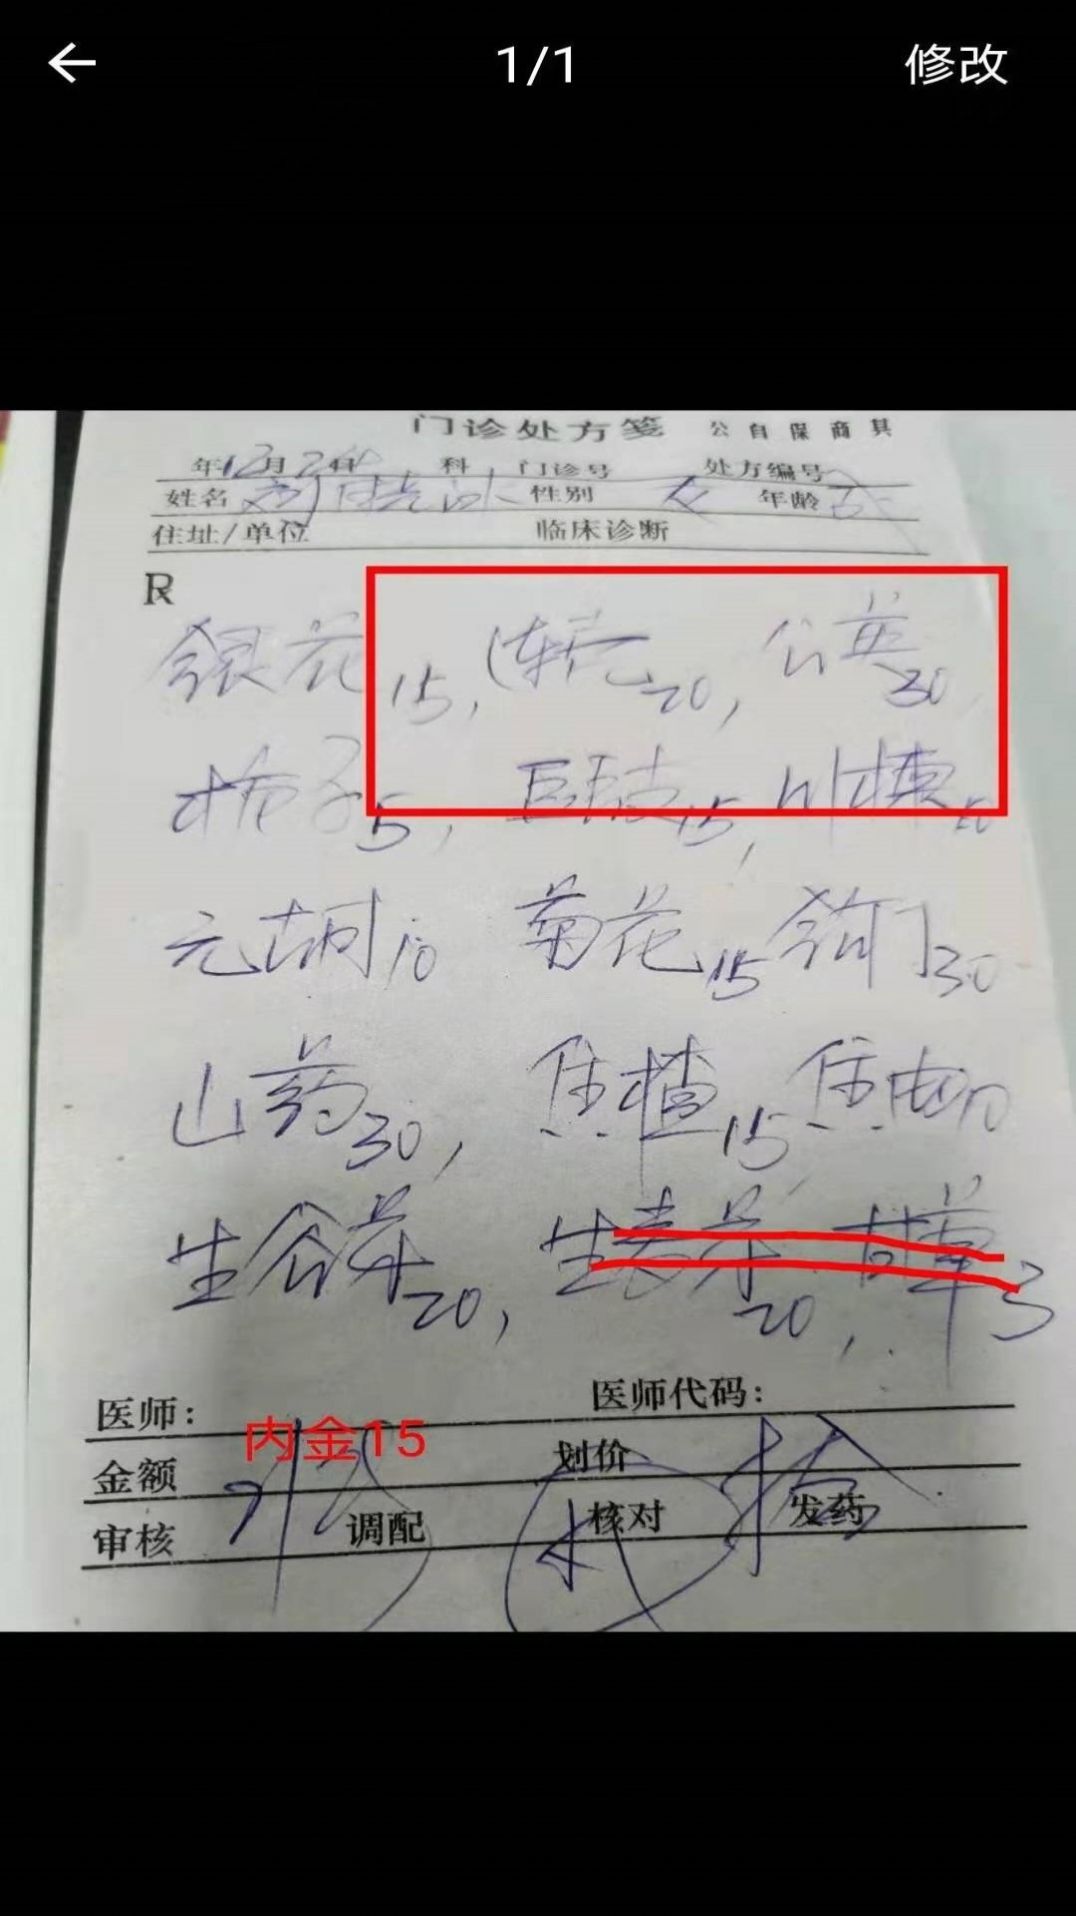 1/1 修改
门诊处方笺 公 自 保 商 其
年12月2日 科 门诊号 处方编号
姓名 刘 性别 女 年龄
住址/单位 临床诊断
R
银花15, 连壳20, 公英30,
栀子5, 豆豉15, 川楝10
元胡10 菊花15 钩丁30
山药30, 焦楂15 焦曲10
生谷芽20, 生麦芽20, 甘草3
医师: 医师代码:
内金15
金额 划价
审核 调配 核对 发药